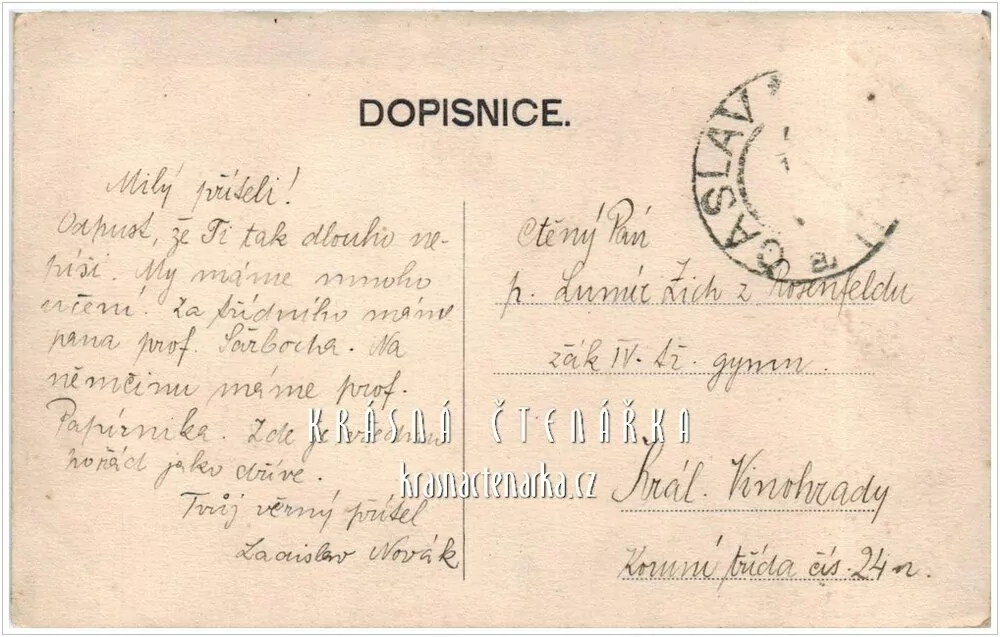 DOPISNICE.
ČÁSLAV
Milý příteli!
Odpust, že Ti tak dlouho ne-
píši. My máme mnoho
učení. Za třídního máme
pana prof. Sárbocha. Na
němčinu máme prof.
Papírnika. Zde je všechno
pořád jako dříve.
Tvůj věrný přítel
Ladislav Novák
Ctěný Pán
p. Lumír Zich z Rosenfeldu
žák IV. tř. gymn.
Král. Vinohrady
Korunní třída čís. 24 n.
KRÁSNÁ ČTENÁŘKA
krasnactenarka.cz